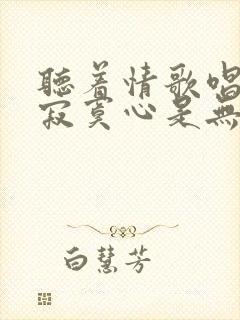 聽着情歌唱
寂寞心是無
白慧芳